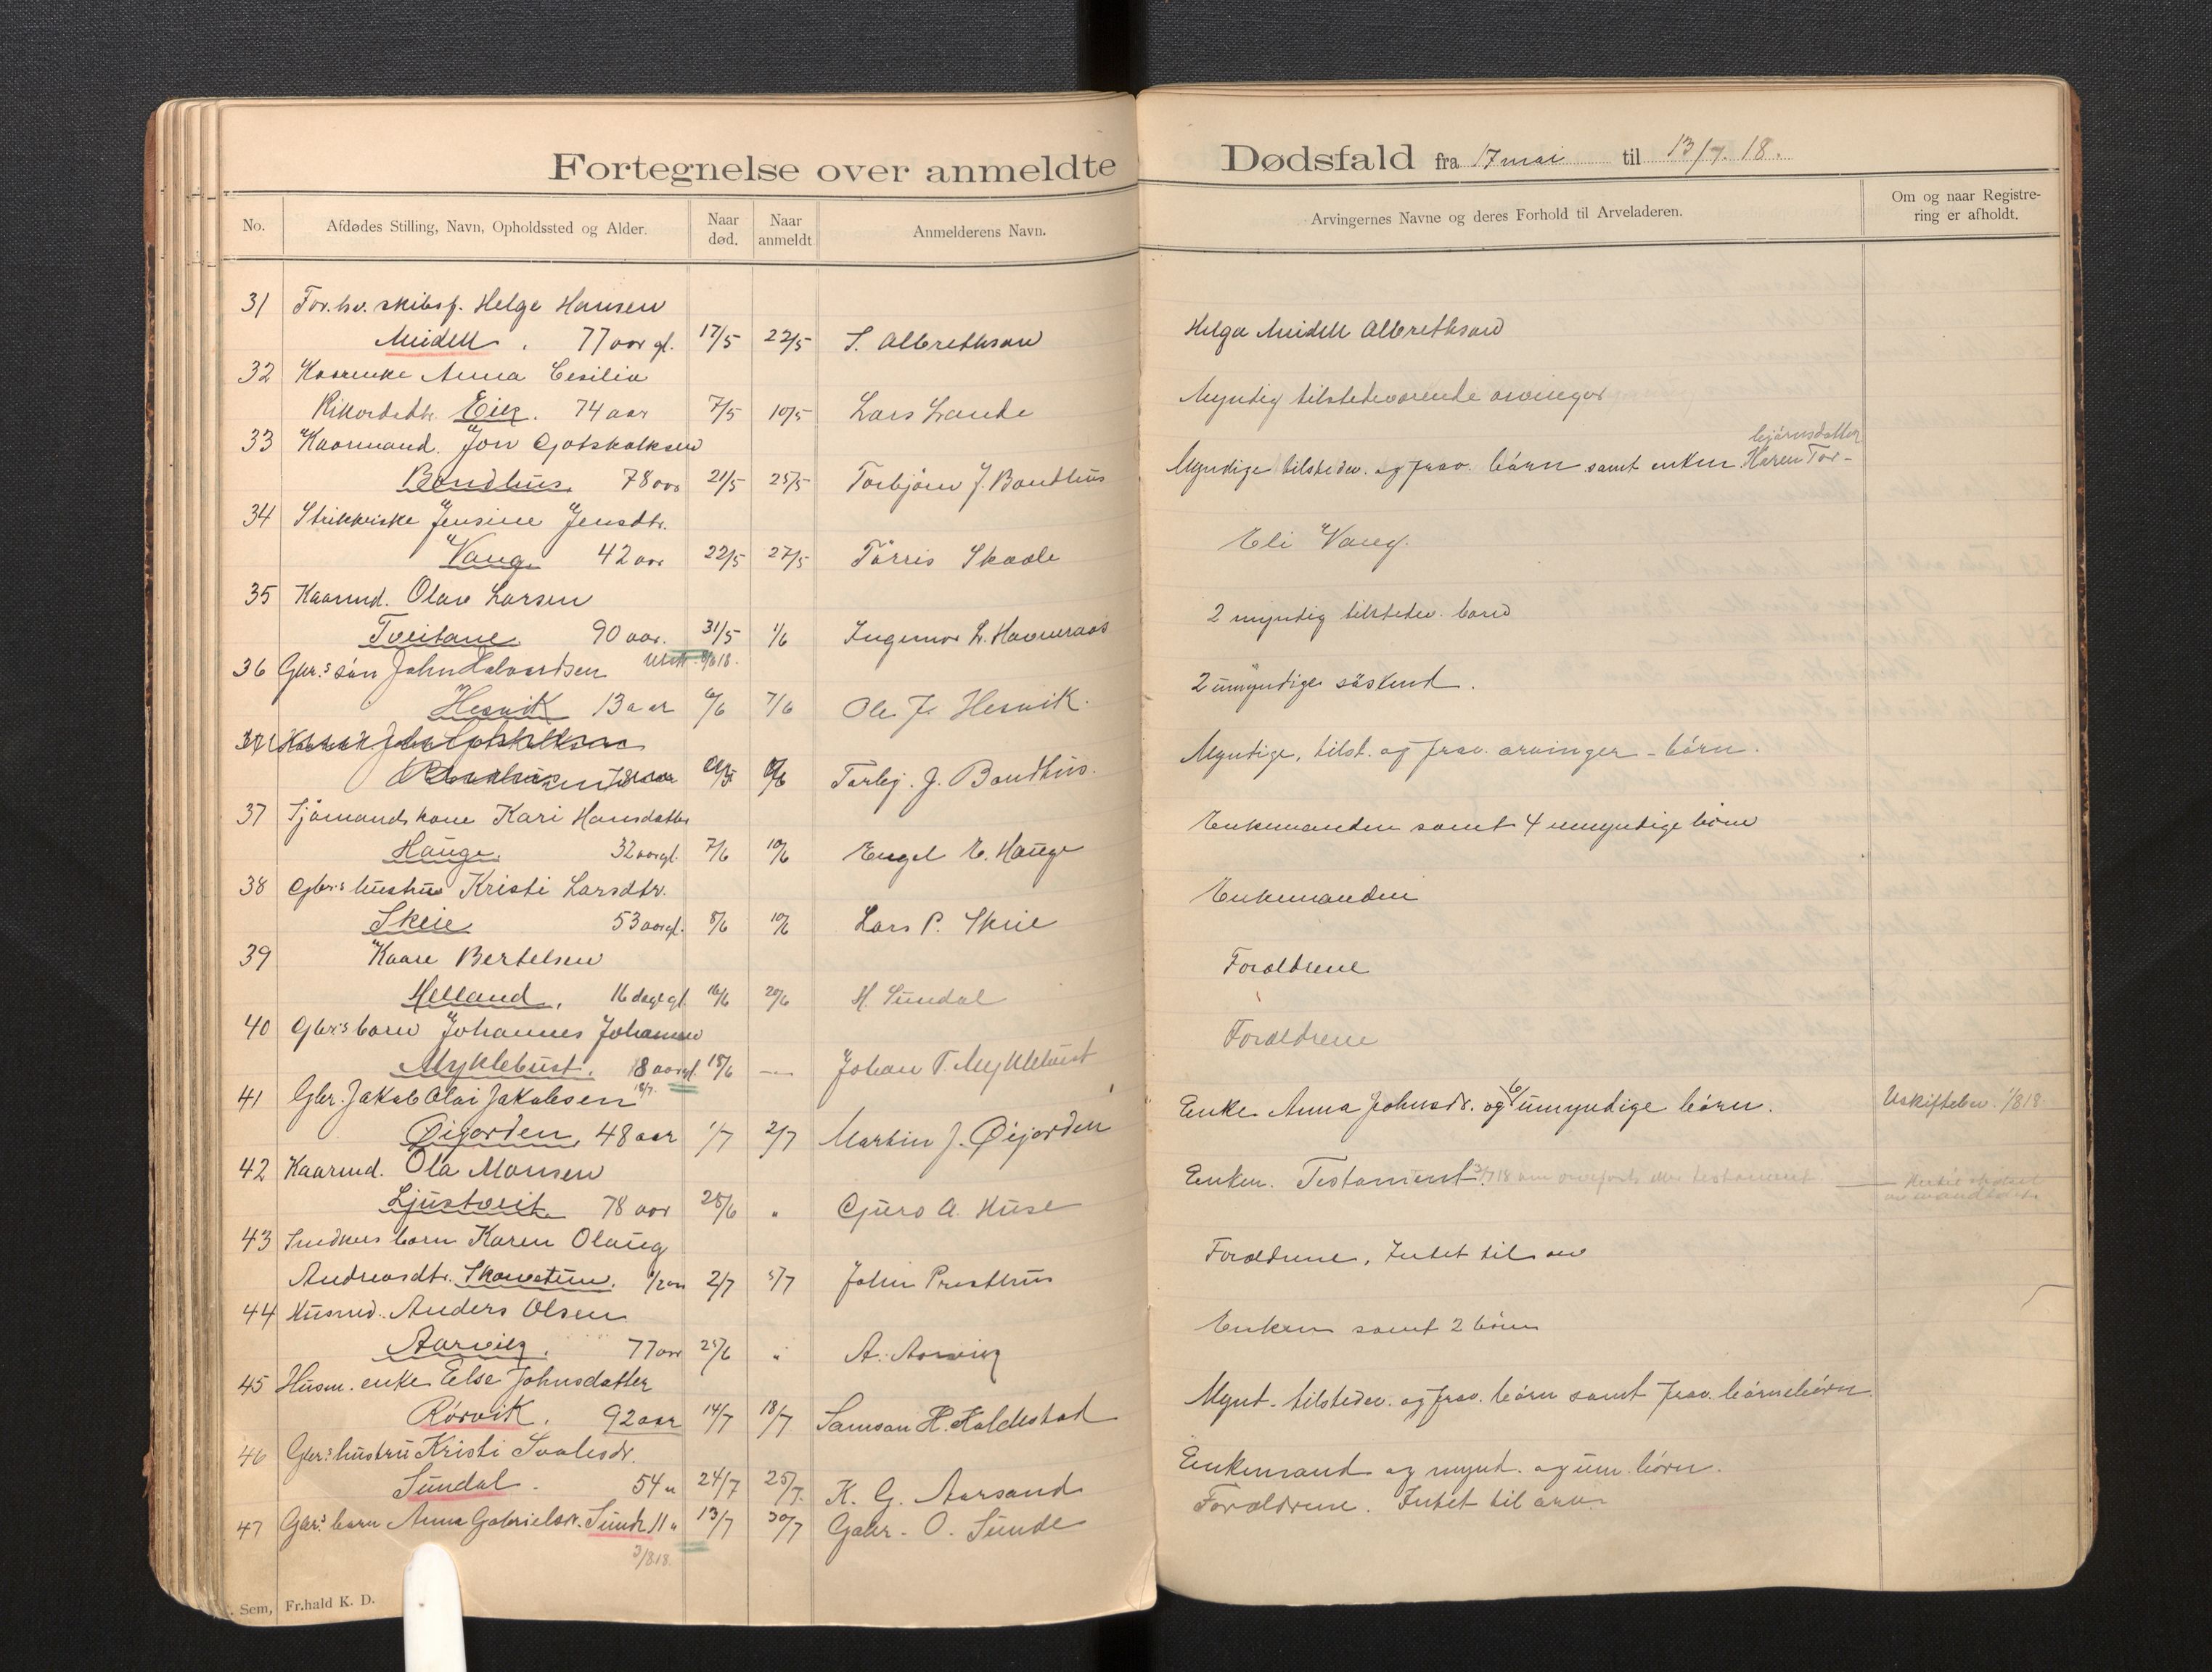 Fortegnelse over anmeldte Dødsfald fra 17 mai til 13/7. 18.
No. Afdødes Stilling, Navn, Opholdssted og Alder. Naar død. Naar anmeldt Anmelderens Navn. Arvingernes Navne og deres Forhold til Arveladeren. Om og naar Registrering er afholdt.
31 For.hv. skibsf. Helge Hansen
Meidell. 77 aar gl. 17/5 22/5 S. Albrethsen Helga Meidell Albrethsen
32 Kaarenke Anna Cesilia
Rikardsdtr. Eik. 74 aar 7/5 10/5 Lars Lande Myndig tilstedeværende arvinger
33 Kaarmand. Jon Gotskalksen bjørnsdatter
Bondhus 78 aar 21/5 25/5 Torbjørn J. Bondhus Myndige tilstedev. og frav. børn samt enken Karen Tor-
34 Strikkerske Jensine Jensdtr.
Vang 42 aar 22/5 27/5 Tørris Skaale Eli Vang.
35 Kaarmd. Olav Larsen
Tveitane 90 aar. 31/5 1/6 Ingemor L. Havneraas 2 myndig tilstedev. barn
36 Gbr.s søn John Halvordsen 8/6 18.
Hesvik 13 aar 6/6 7/6 Ole J. Hesvik. 2 umyndige søskend.
Torbj. J. Bondhus. Myndige, tilst. og frav. arvinger - børn.
37 Sjømands kone Kari Hansdatter
Hauge. 32 aar gl. 7/6 10/6 Engel E. Hauge Enkemanden samt 4 umyndige børn
38 Gbr.s hustru Kristi Larsdtr.
Skeie 53 aar gl. 8/6 10/6 Lars P. Skeie Enkemanden
39 Kaare Bertelsen
Helland. 16 dage gl. 16/6 20/6 H. Sundal Forældrene
40 Gbr.s barn Johannes Johannesen
Myklebust. 8 aar gl. 18/6 — Johan T. Myklebust Forældrene
41 Gbr. Jakob Olai Jakobsen 18/7.
Øigarden, 48 aar 1/7 2/7 Martin J. Øigarden Enke Anna Johnsdr. og 6 umyndige børn. Uskiftebev. 1/8 18.
42 Kaarmd. Ola Monsen
Ljustveit 78 aar 28/6 " Guro A. Huse Enken. Testament.
43 Snedkers barn Karen Olaug
Andreasdtr. Skovetun. 1/2 aar 2/7 5/7 John Presthus Forældrene, Intet til arv
44 Husmd. Anders Olsen
Aarvik. 77 aar 25/6 " A. Aarvik Enken samt 2 børn
45 Husm. enke Else Johnsdatter
Rørvik. 92 aar 14/7 18/7 Samson H. Haldestad Mynd. tilstedev. og frav. børn samt frav. børnebørn.
46 Gbr.s hustru Kristi Svalesdr.
Sundal. 54 " 24/7 25/7. K. G. Aarsand Enkemand og mynd. og um. børn.
47 Gbr.s barn Anna Gabrielsdr. Sunde 11 " 13/7 30/7 Gabr. O. Sunde Forældrene. Intet til arv.
3/8 18.
. Sem, Fr.hald K. D.